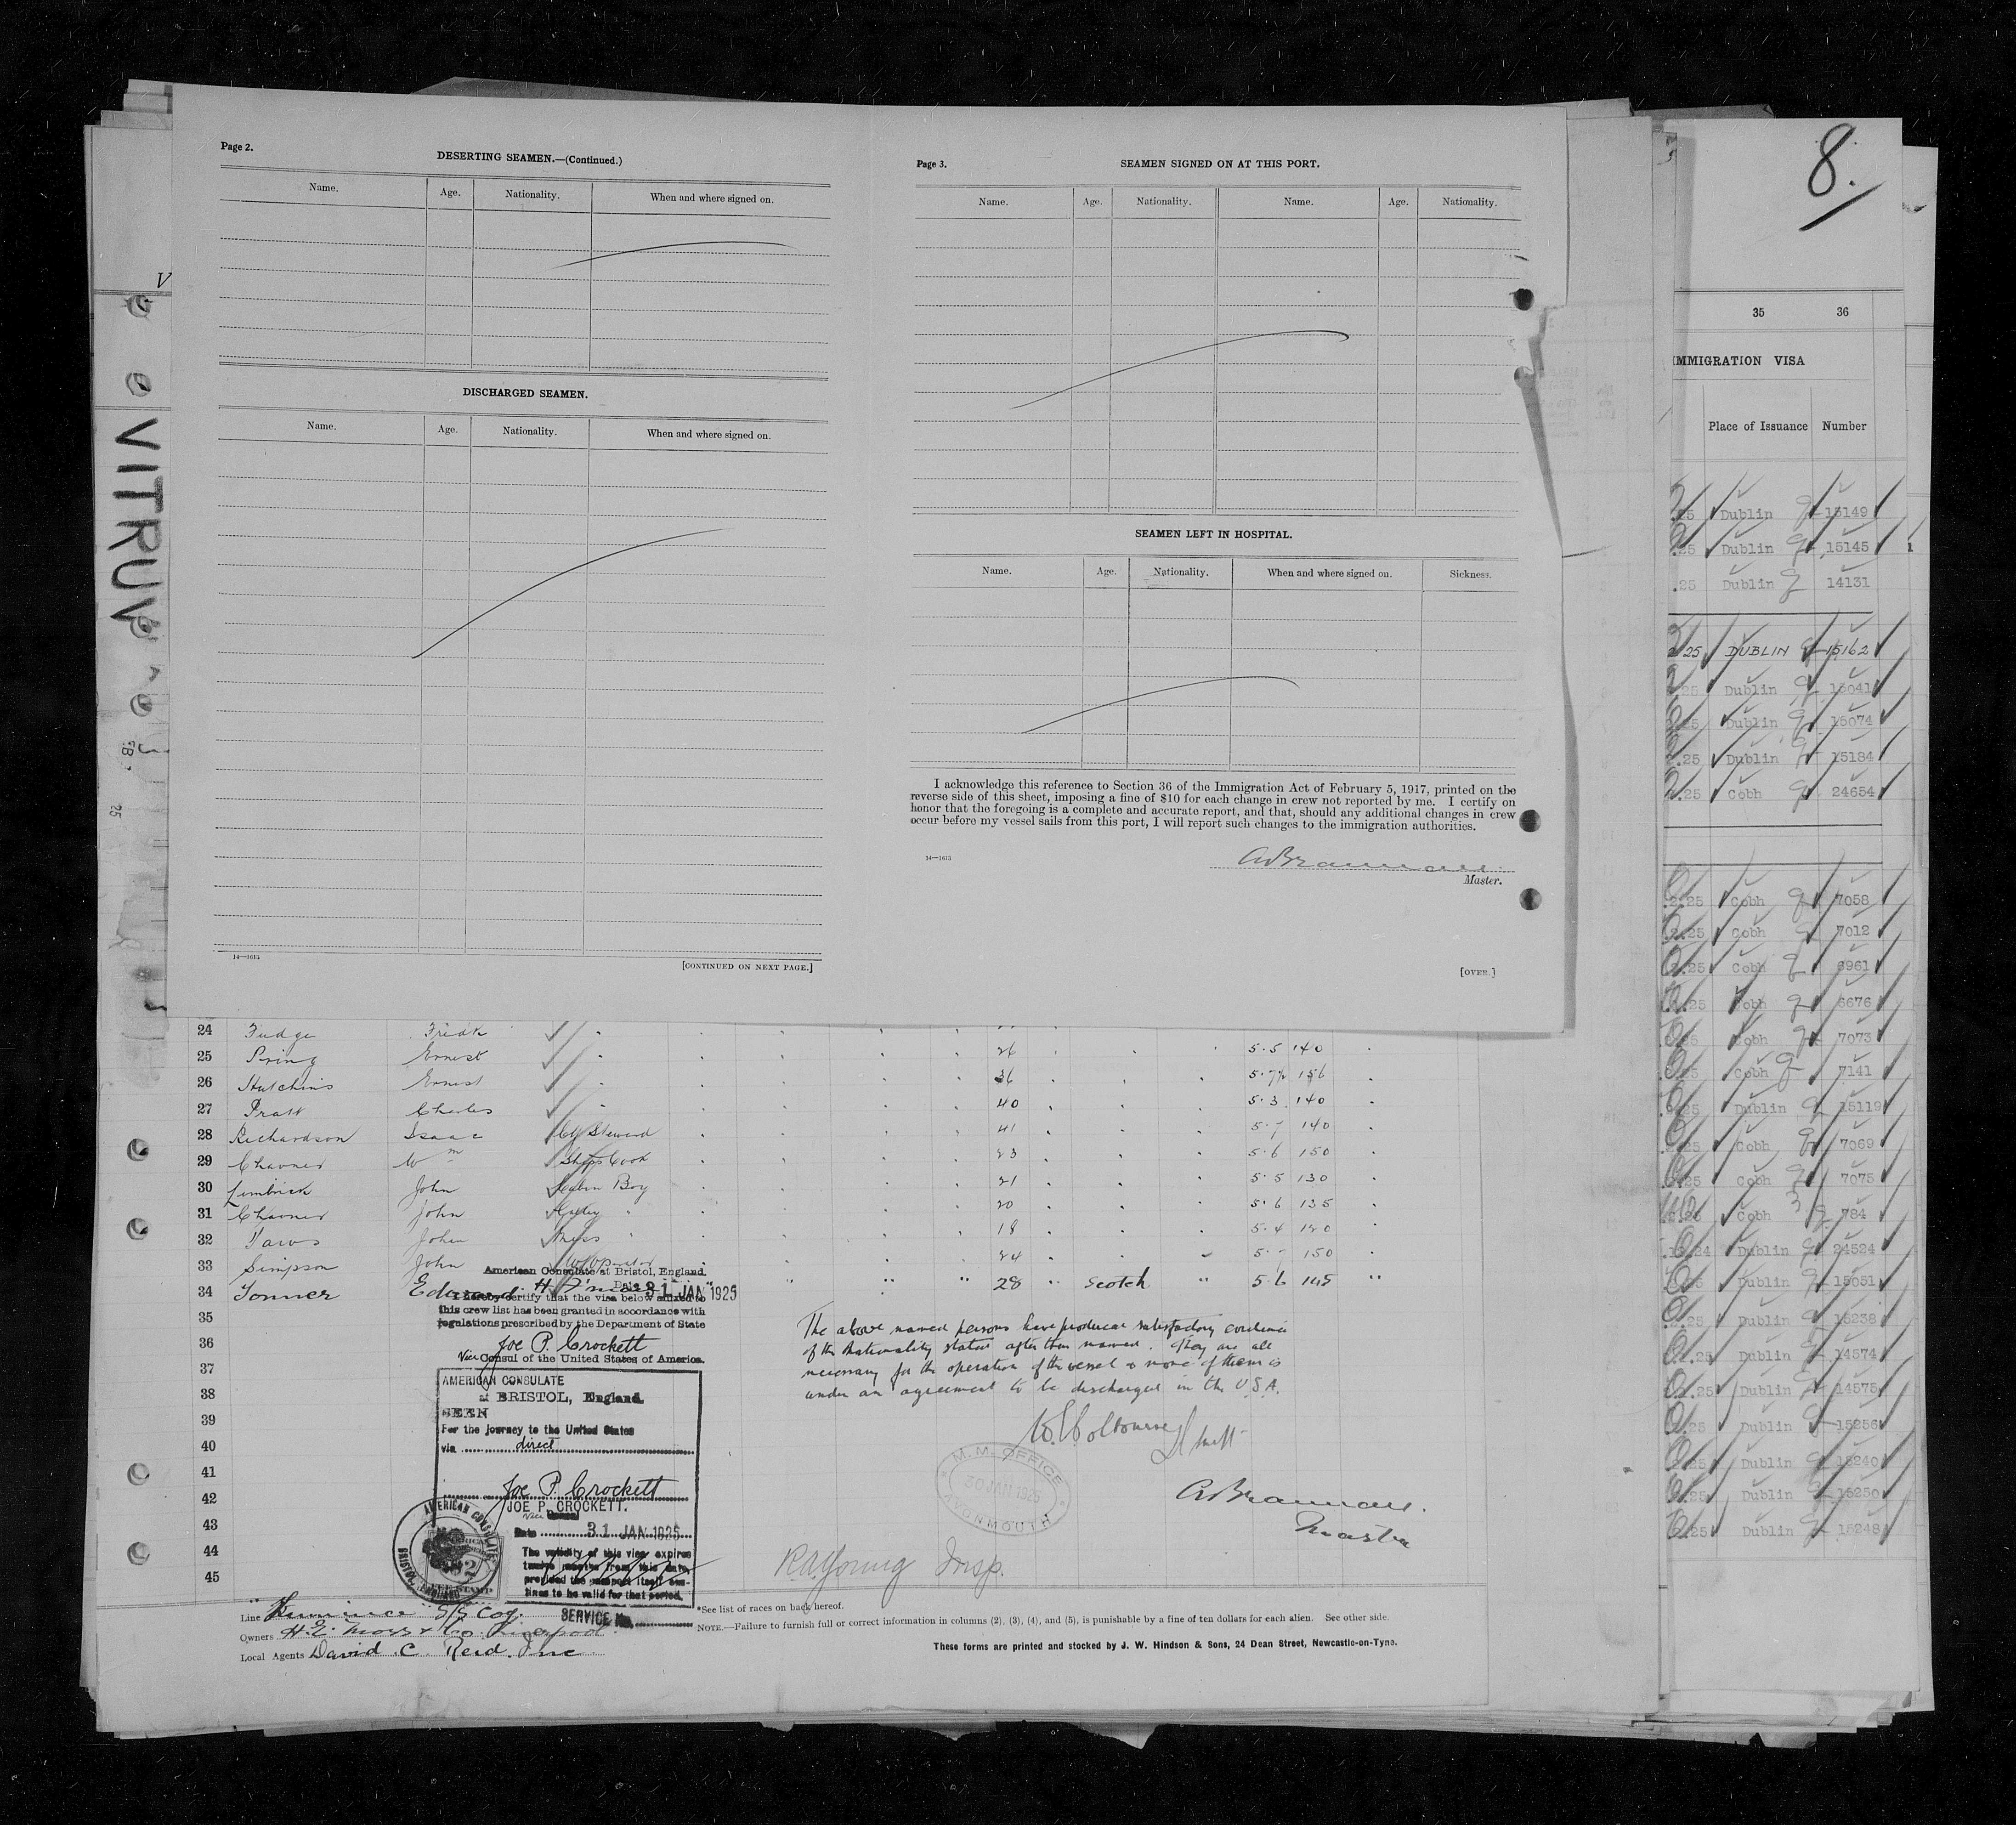 Page 2.
DESERTING SEAMEN.—(Continued.)
Name. Age. Nationality. When and where signed on.
DISCHARGED SEAMEN.
Name. Age. Nationality. When and where signed on.
14—1615
[CONTINUED ON NEXT PAGE.]
Page 3.
SEAMEN SIGNED ON AT THIS PORT.
Name. Age. Nationality. Name. Age. Nationality.
SEAMEN LEFT IN HOSPITAL.
Name. Age. Nationality. When and where signed on. Sickness.
I acknowledge this reference to Section 36 of the Immigration Act of February 5, 1917, printed on the
reverse side of this sheet, imposing a fine of $10 for each change in crew not reported by me. I certify on
honor that the foregoing is a complete and accurate report, and that, should any additional changes in crew
occur before my vessel sails from this port, I will report such changes to the immigration authorities.
14—1615
Master.
[OVER.]
VITRUV
24 Fudge Fredk
25 Pring Ernest 26 5.5 140
26 Hutchins Ernest 36 5.7½ 156
27 Pratt Charles 40 5.3 140
28 Richardson Isaac Cf Steward 41 5.7 140
29 Wm Ships Cook 43 5.6 150
30 John Cabin Boy 21 5.5 130
31 John Galley 20 5.6 135
32 John Mess 18 5.4 120
33 Simpson John W/Operator 24 150
34 Tonner Edward H 28 Scotch 5.6 145
35
36
37
38
39
40
41
42
43
44
45
American Consulate at Bristol, England.
Date 31 JAN 1925
I hereby certify that the visa below affixed to
this crew list has been granted in accordance with
regulations prescribed by the Department of State
Joe P. Crockett
Vice Consul of the United States of America.
AMERICAN CONSULATE
at BRISTOL, England.
SEEN
For the journey to the United States
via direct
Joe P. Crockett
JOE P. CROCKETT.
Vice Consul
Date 31 JAN 1925
The validity of this visa expires
twelve months from this date,
provided the passport itself con-
tinues to be valid for that period.
SERVICE No.
AMERICAN CONSULATE BRISTOL, ENGLAND
FEE STAMP
The above named persons have produced satisfactory evidence
of the Nationality stated after them named. They are all
necessary for the operation of the vessel & none of them is
under an agreement to be discharged in the U.S.A.
M.M. OFFICE
30 JAN 1925
AVONMOUTH
Master
R A Young Insp.
Line S/S Coy.
Owners H.E. Moss & Co. Liverpool
Local Agents David C. Reid Inc
*See list of races on back hereof.
NOTE.—Failure to furnish full or correct information in columns (2), (3), (4), and (5), is punishable by a fine of ten dollars for each alien. See other side.
These forms are printed and stocked by J. W. Hindson & Sons, 24 Dean Street, Newcastle-on-Tyne.
8.
35 36
IMMIGRATION VISA
Place of Issuance Number
25 Dublin 15149
25 Dublin 15145
.25 Dublin 14131
25 DUBLIN 15162
.25 Dublin 15041
25 Dublin 15074
.25 Dublin 15184
.25 Cobh 24654
.25 Cobh 7058
.25 Cobh 7012
.25 Cobh 6961
.25 Cobh 6676
25 Cobh 7073
25 Cobh 7141
25 Dublin 15119
25 Cobh 7069
.25 Cobh 7075
Cobh 784
.24 Dublin 24524
25 Dublin 15051
.25 Dublin 15238
.25 Dublin 14574
.25 Dublin 14575
.25 Dublin 15256
.25 Dublin 15240
.25 Dublin 15250
.25 Dublin 15248